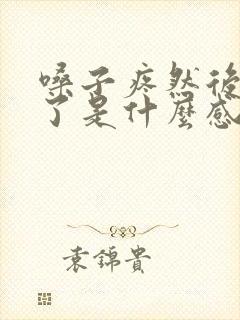 嗓子疼然後
了是什麼感
袁錦貴